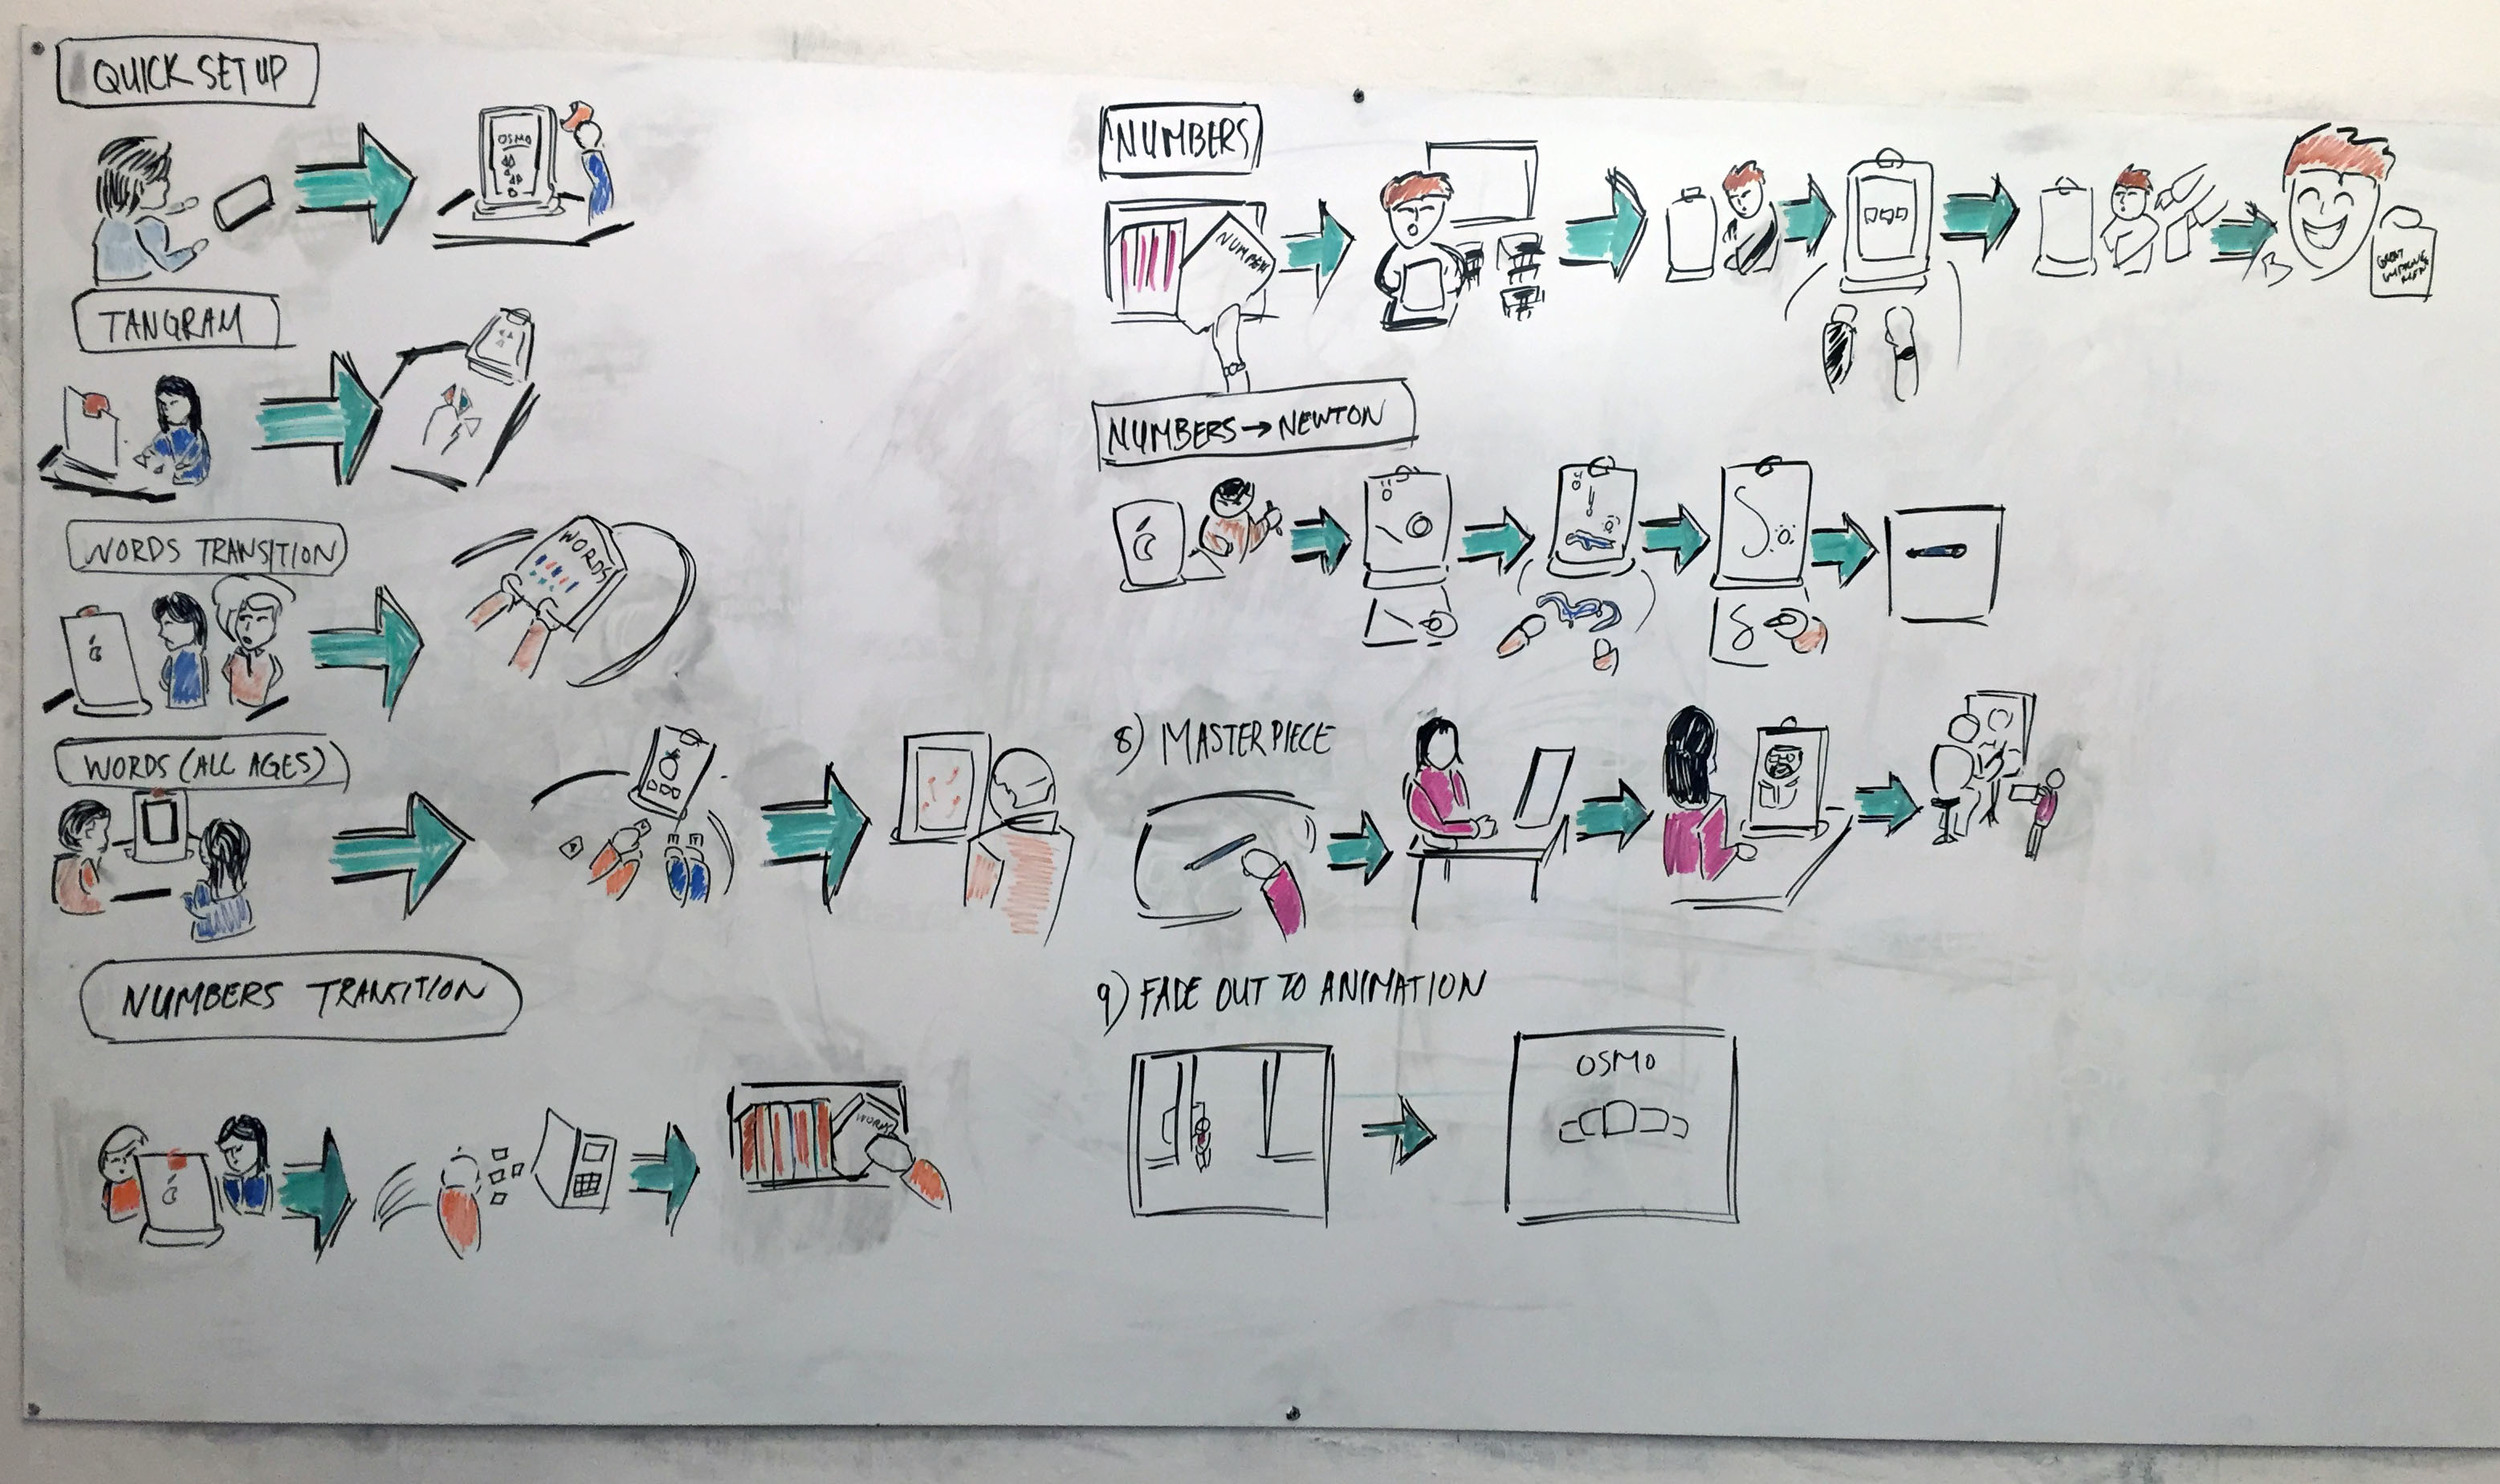 QUICK SET UP
OSMO
TANGRAM
WORDS TRANSITION
WORDS
WORDS (ALL AGES)
NUMBERS TRANSITION
WORDS
NUMBERS
NUMBERS
GREAT
NUMBERS → NEWTON
8) MASTERPIECE
9) FADE OUT TO ANIMATION
OSMO